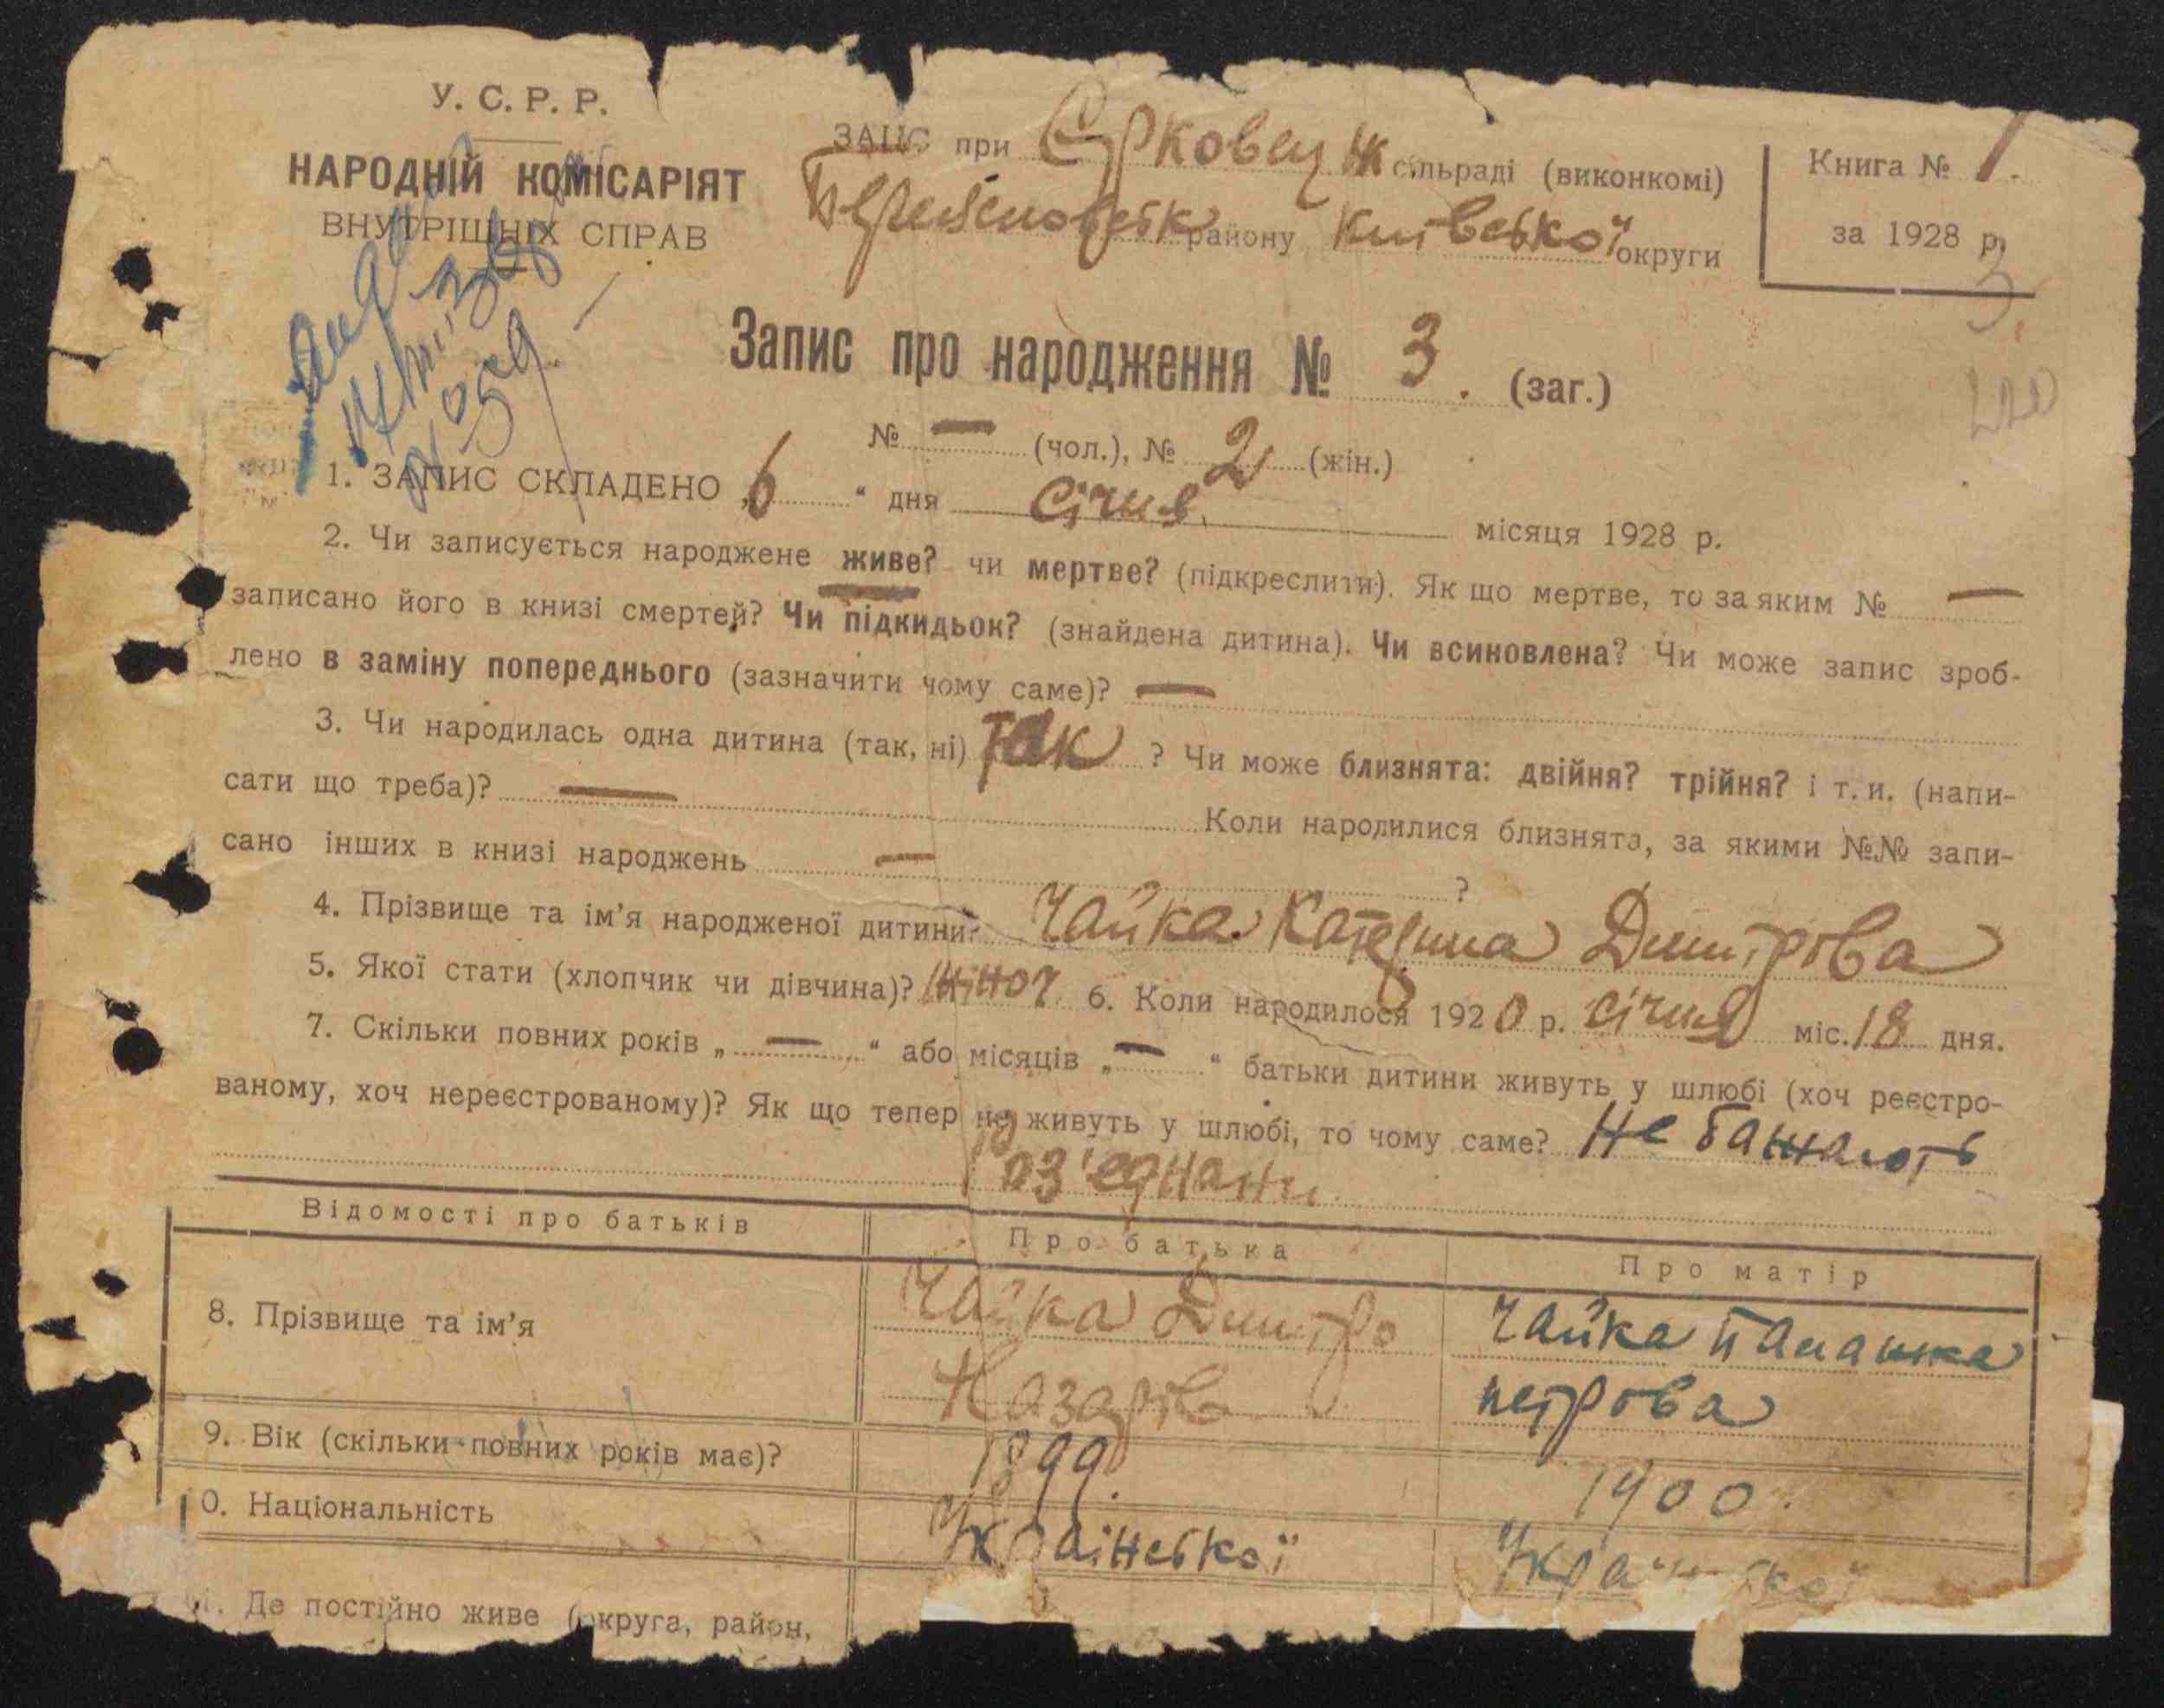 У. С. Р. Р.
НАРОДНІЙ КОМІСАРІЯТ
ВНУТРІШНІХ СПРАВ
ЗАПИС при сільраді (виконкомі)
району Київської округи
Книга № 1.
за 1928 р.
Запис про народження № 3. (заг.)
№ — (чол.), № 2 (жін.)
1. ЗАПИС СКЛАДЕНО „6“ дня січня місяця 1928 р.
2. Чи записується народжене живе? чи мертве? (підкреслити). Як що мертве, то за яким № —
записано його в книзі смертей? Чи підкидьок? (знайдена дитина). Чи всиновлена? Чи може запис зроб-
лено в заміну попереднього (зазначити чому саме)? —
3. Чи народилась одна дитина (так, ні) так ? Чи може близнята: двійня? трійня? і т. и. (напи-
сати що треба)? — Коли народилися близнята, за якими №№ запи-
сано інших в книзі народжень — ?
4. Прізвище та ім’я народженої дитини? Чайка Катерина Дмитрова
5. Якої стати (хлопчик чи дівчина)? жіноч 6. Коли народилося 1920 р. січня міс. 18 дня.
7. Скільки повних років „ — “ або місяців „ — “ батьки дитини живуть у шлюбі (хоч реєстро-
ваному, хоч нереєстрованому)? Як що тепер не живуть у шлюбі, то чому саме? Не бажають
роз'єднани
Відомості про батьків Про батька Про матір
8. Прізвище та ім’я Чайка Дмитро Чайка Палажка
Назарів Петрова
9. Вік (скільки повних років має)? 1899. 1900.
10. Національність Української Української
Де постійно живе (округа, район,